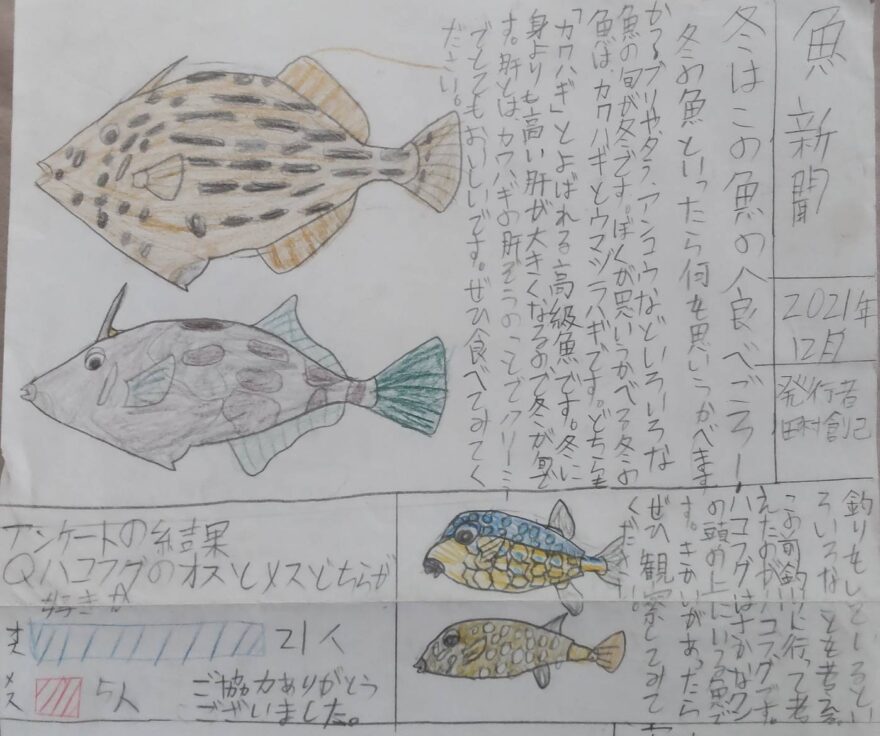 魚新聞
2021年
12月
発行者
田村創己
冬はこの魚の食べごろ！
冬の魚といったら何を思いうかべます
か？ブリやタラ、アンコウなどいろいろな
魚の旬が冬です。ぼくが思いうかべる冬の
魚は、カワハギとウマヅラハギです。どちらも
「カワハギ」とよばれる高級魚です。冬に
身よりも高い肝が大きくなるので冬が旬で
す。肝とはカワハギの肝ぞうのことでクリーミー
でとてもおいしいです。ぜひ食べてみてく
ださい。
釣りをしているとい
ろいろなことを考える。
この前釣りに行って考
えたのがハコフグです。
ハコフグはさかなクン
の頭の上にいる魚で
す。きかいがあったら
ぜひ観察してみて
ください。
アンケートの結果
Qハコフグのオスとメスどちらが
好きか
オス 21人
メス 5人
ご協力ありがとう
ございました。